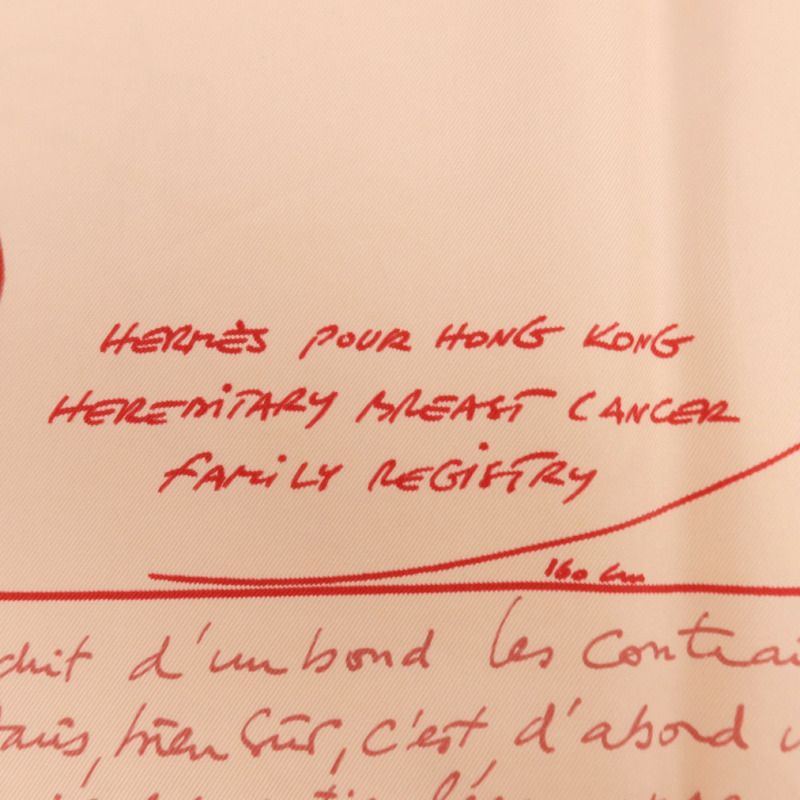 HERMÈS POUR HONG KONG
HEREDITARY BREAST CANCER
FAMILY REGISTRY
160 cm
d'un bond les
bien sûr, c'est d'abord